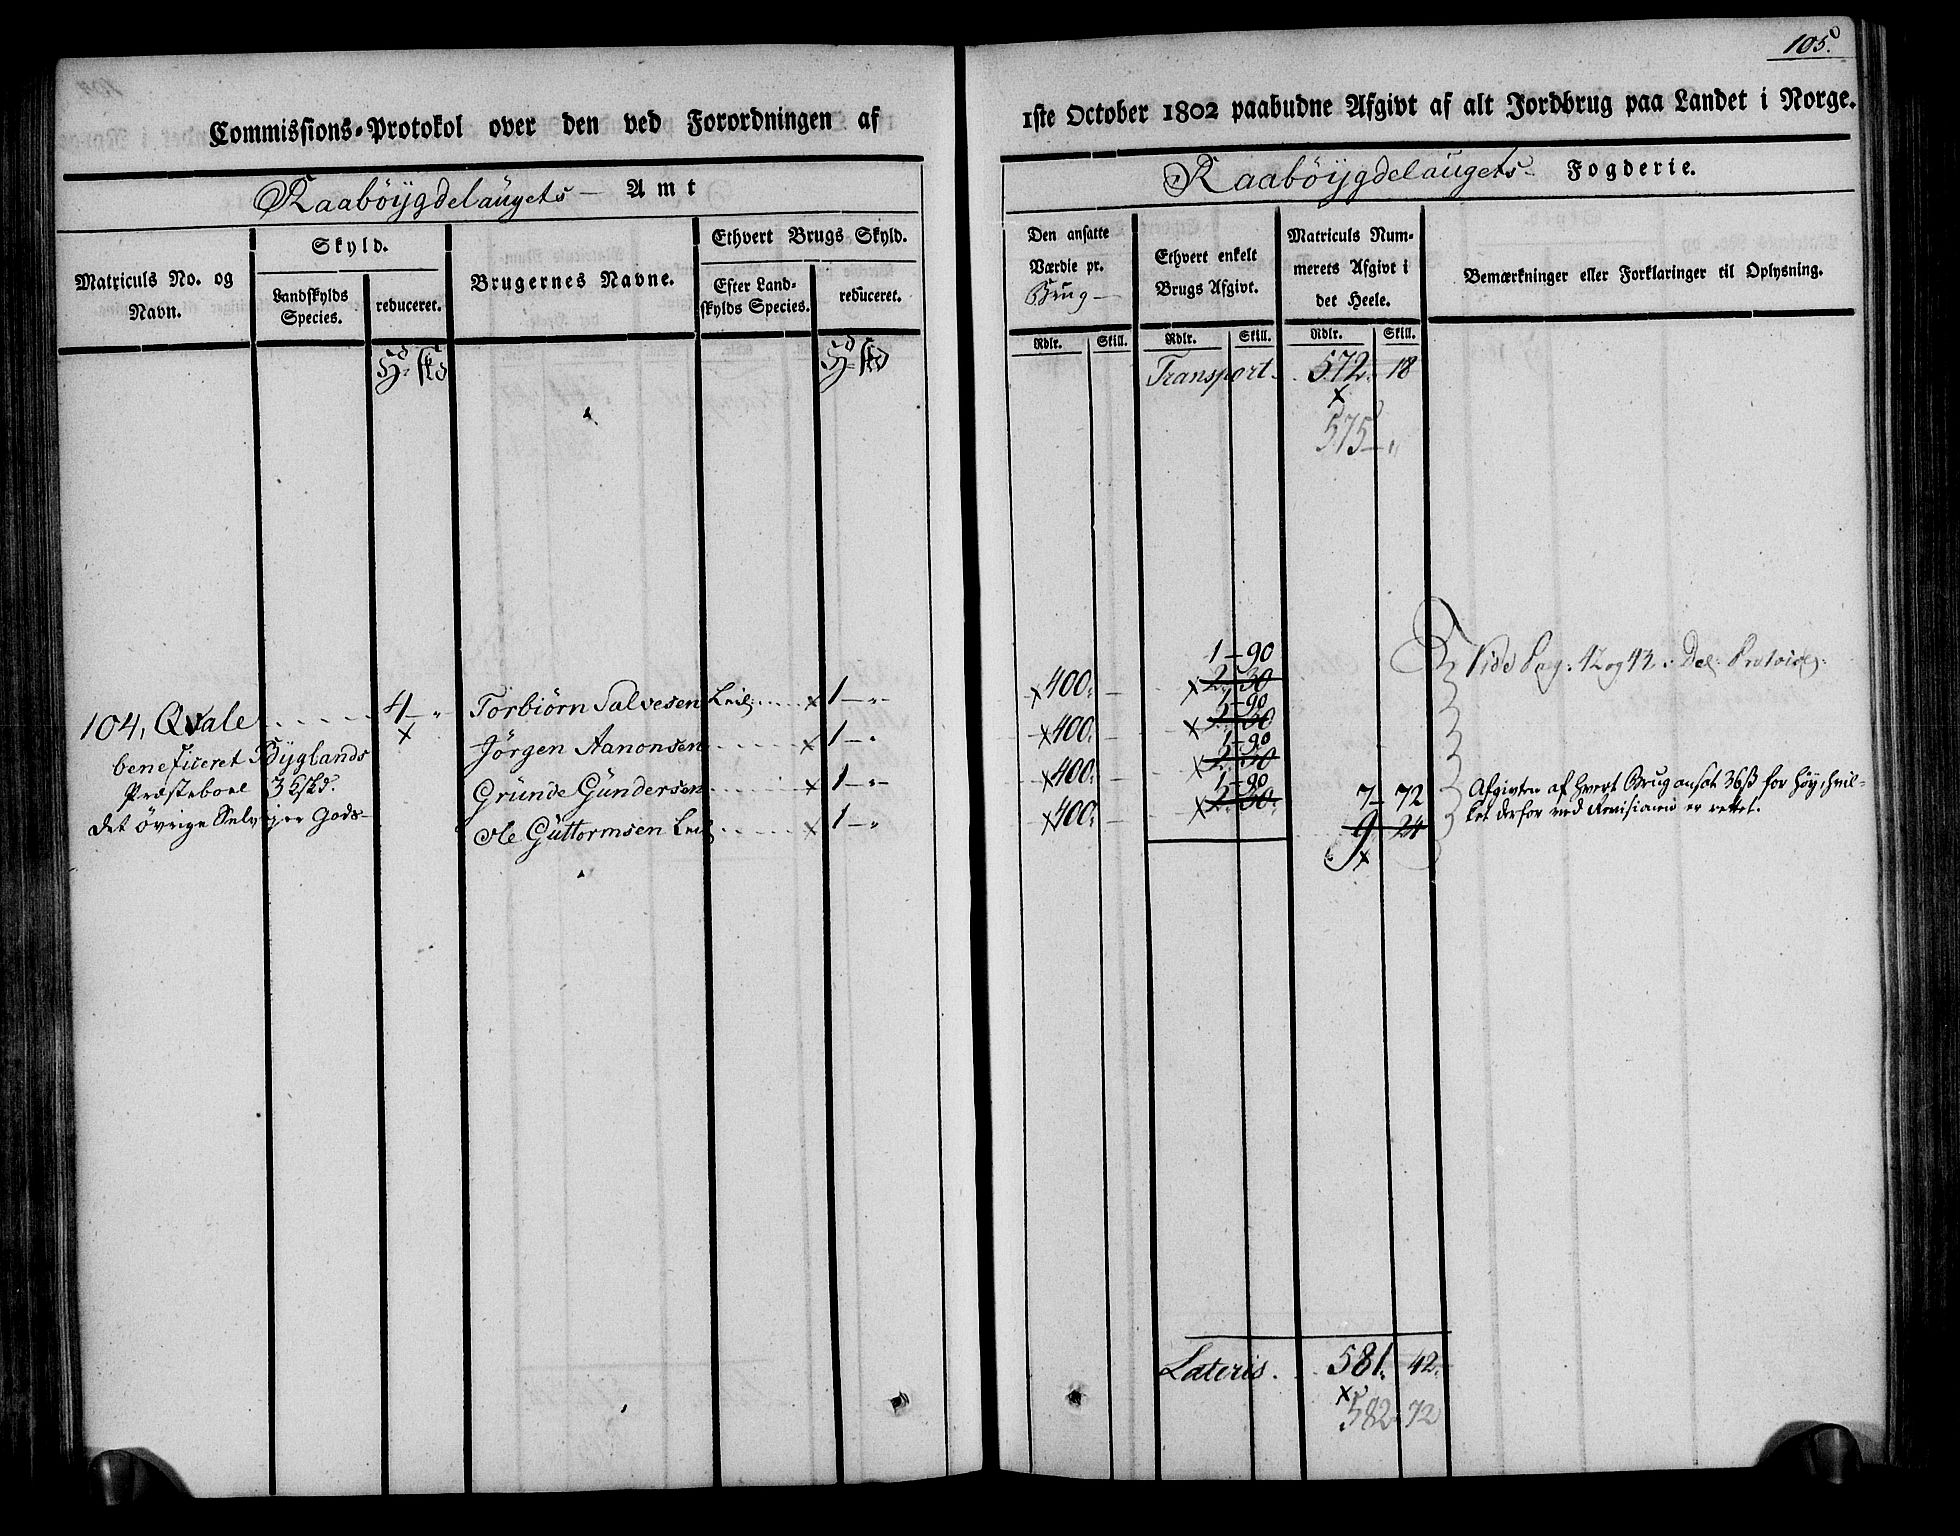 105.
Commissions-Protokol over den ved Forordningen af
1ste October 1802 paabudne Afgivt af alt Jordbrug paa Landet i Norge.
Raabøÿgdelaugets Amt
Raabøÿgdelaugets Fogderie.
Matriculs No. og Navn.
Skyld.
Landskylds Species.
reduceret.
Brugernes Navne.
Ethvert Brugs Skyld.
Efter Landskylds Species.
reduceret.
Den ansatte Værdie pr. Brug
Ethvert enkelt Brugs Afgivt.
Matriculs Nummerets Afgivt i det Heele.
Bemærkninger eller Forklaringer til Oplysning.
Rdlr. Skill. Rdlr. Skill. Rdlr. Skill.
Transport. 572. 18
575 — „
Vide Pag: 42 og 43.
104, Qvale 4 — „ Torbiørn Salvesen Leil: 1 — „ 400. — 1 — 90 2. 30
beneficeret Bÿglands Jørgen Aanonsen 1 — „ 400. — 1 — 90 2. 30
Præsteboel 3 Gründe Gundersen 1 — „ 400. — 1 — 90 2. 30
det øvrige Selvejer Gods Ole Guttormsen Leil 1 — „ 400. — 1 — 90 2. 30.
7 — 72
9 — 24
Afgivten af hvert Brug ansat 36ß for høy, hvil-
ket derfor ved Revisionen er rettet.
Lateris. 581. 42.
582 72